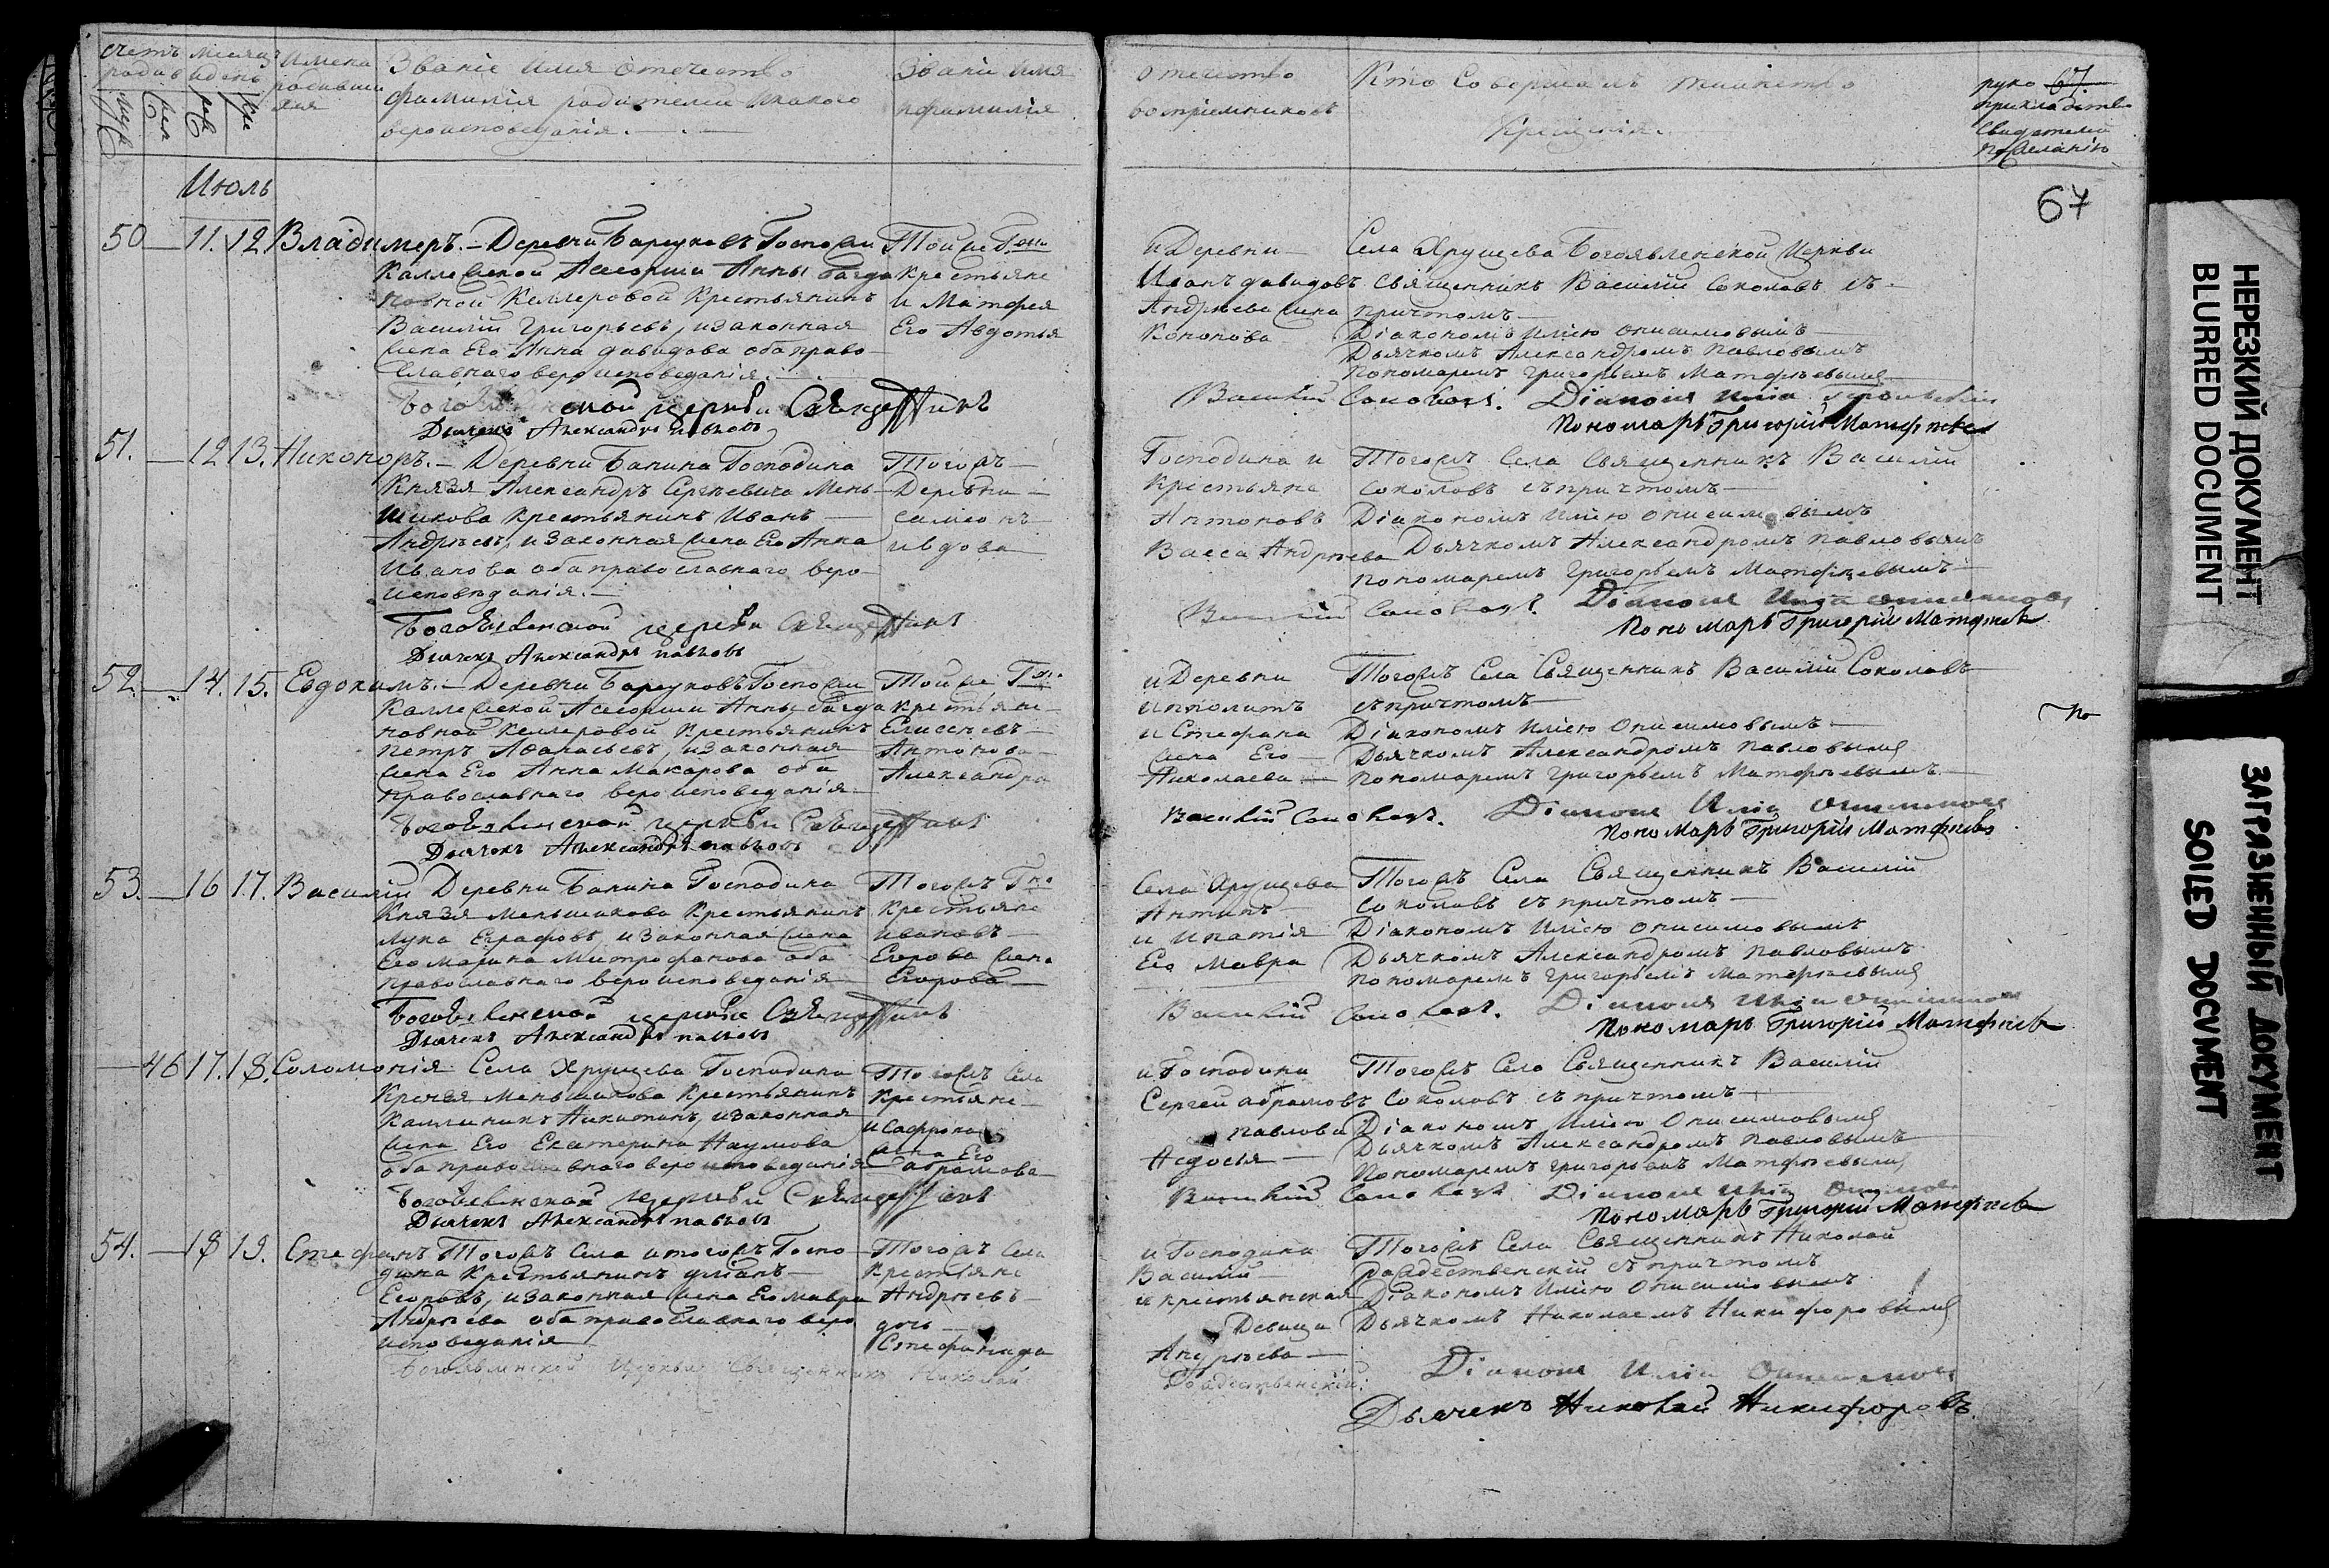 счетъ
родив
муж
жен
месяцъ
и день
рож
кре
имена
родивши
хся
Званіе имя отечество
фамилія родителей икакого
вероисповеданія.
Званіе имя
ифамилія
отечество
воспріемниковъ
Кто совершалъ таинство
крещенія.
руко 67.
прикладство
свидетелей
пожеланію
67
Июль
50 — 11. 12. Владимеръ. — Деревни Госпожи
Коллежской Асесорши Анны богда
новной Келлеровой крестьянинъ
Василій Григорьевъ, изаконная
жена Его Анна давидова оба право
славнаго вероисповеданія.
Тойже Гжи
крестьяне
и Матфея
Его Авдотья
и Деревни
Иванъ давидовъ
Андреева жена
Кононова
Села Хрущева Богоявленской Церкви
священникъ Василій Соколовъ съ
причтомъ
Діакономъ Иліею Онисимовымъ
Дьячкомъ Александромъ Павловымъ
пономаремъ Григорьемъ Матфеевымъ
Церкви Священникъ
Василій Соколовъ. Діаконъ Илія
Дьячекъ Александръ павловъ
Пономарь Григорій Матфеевъ
51. — 12 13. Никоноръ. — Деревни Банина Господина
Князя Александръ Сергѣевича Мень
шикова крестьянинъ Иванъ
Андрѣевъ, изаконная жена Его Анна
Иванова оба православнаго веро
исповѣданія.
Тогожъ
Деревни
Симіонъ
ивдова
Господина и
крестьяне
Антоновъ
Васса Андрѣева
Тогожъ Села священникъ Василій
соколовъ съпричтомъ
Діакономъ Иліею Онисимовымъ
Дьячкомъ Александромъ Павловымъ
пономаремъ Григорьемъ Матфѣевымъ
Богоявленской церкви Священникъ
Василій Соколовъ Діаконъ Илія Онисимовъ
Дьячекъ Александръ павловъ
Пономарь Григорій Матфеевъ
52. — 14. 15. Евдокимъ. — Деревни Госпожи
Коллежской Асесорши Анны богда
новной Келлеровой крестьянинъ
Петръ Афанасьевъ, изаконная
жена Его Анна Макарова оба
православнаго вероисповеданія
Тойже Гжи
крестьяне
Елисеевъ
Антонова
Александра
и Деревни
Ипполитъ
и Стефана
жена Его
Николаева
Тогожъ Села Священникъ Василій Соколовъ
съпричтомъ
Діакономъ Иліею Онисимовымъ
Дьячкомъ Александромъ Павловымъ
пономаремъ Григорьемъ Матфѣевымъ
Богоявленской церкви Священникъ
Василій Соколовъ. Діаконъ Илія Онисимовъ
Дьячекъ Александръ павловъ
Пономарь Григорій Матфеевъ
53. — 16 17. Василій Деревни Банина Господина
Князя меньшикова крестьянинъ
Лука Еграфовъ, изаконная жена
Его Марина Митрофанова оба
православнаго вероисповеданія
Тогожъ Гна
крестьяне
Ивановъ
Егорова жена
Егорова
Села Хрущева
Антипъ
и Ипатія
Его Мавра
Тогожъ Села Священникъ Василій
соколовъ съпричтомъ
Діакономъ Иліею Онисимовымъ
Дьячкомъ Александромъ Павловымъ
пономаремъ Григорьемъ Матфѣевымъ
Богоявленской церкви Священникъ
Василій Соколовъ. Діаконъ Илія Онисимовъ
Дьячекъ Александръ павловъ
Пономарь Григорій Матфеевъ
— 46 17. 18. Соломонія Села Хрущева Господина
Князя Меньшикова Крестьянинъ
Каллиникъ Никитинъ, изаконная
жена Его Екатерина Наумова
оба православнаго вероисповеданія
Тогожъ Села
крестьяне
и Сафрона
жена Его
абрамова
и Господина
Сергей абрамовъ
павлова
Федосья
Тогожъ Села Священникъ Василій
соколовъ съпричтомъ
Діакономъ Иліею Онисимовымъ
Дьячкомъ Александромъ Павловымъ
Пономаремъ Григорьемъ Матфѣевымъ
Богоявленской церкви Священникъ
Василій Соколовъ Діаконъ Илія Онисимовъ
Дьячекъ Александръ павловъ
Пономарь Григорій Матфеевъ
54. — 18 19. Стефанъ Тогожъ Села итогожъ Госпо
дина Крестьянинъ уліанъ
Егоровъ, изаконная жена Его мавра
Андрѣева оба православнаго веро
исповеданія
Тогожъ Села
крестьяне
Андрѣевъ
дочь
Стефанида
и Господина
Василій
и крестьянская
Девица
Андрѣева
Тогожъ Села Священникъ Николай
рождественскій съпричтомъ
Діакономъ Иліею Онисимовымъ
Дьячкомъ Николаемъ Никифоровымъ
Богоявленской Церкви Священникъ Николай
Рождественскій. Діаконъ Илія Онисимовъ
Дьячекъ Николай Никифоровъ.
НЕРЕЗКИЙ ДОКУМЕНТ
BLURRED DOCUMENT
ЗАГРЯЗНЕННЫЙ ДОКУМЕНТ
SOILED DOCUMENT